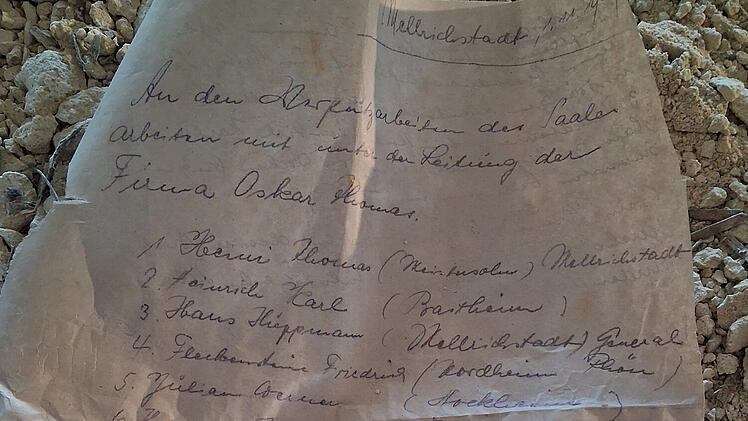 Mellrichstadt, 1.11.19
An den Verputzarbeiten des Saales
arbeiten mit unter der Leitung der
Firma Oskar Thomas.
1 Henri Thomas (Meistersohn) Mellrichstadt
2. Heinrich Karl (Bastheim)
3. Hans Hüppmann (Mellrichstadt) General
4. Fleckenstein Friedrich (Nordheim Rhön)
5. Julian Werner (Stockheim)
6